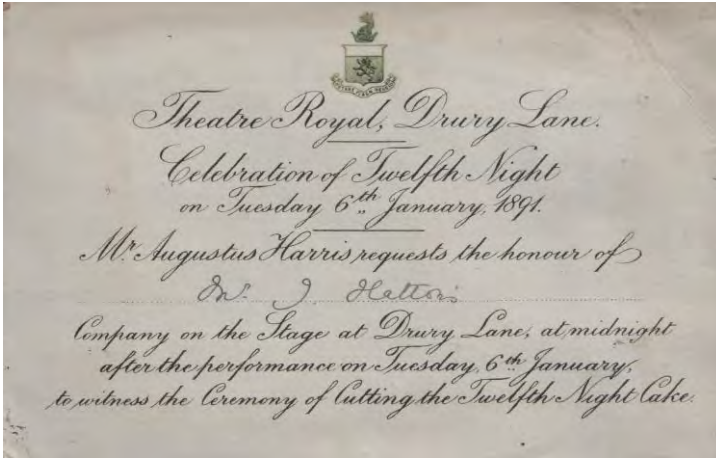 Theatre Royal, Drury Lane.
Celebration of Twelfth Night
on Tuesday 6th January, 1891.
Mr. Augustus Harris requests the honour of
Mr. J. Hatton's
Company on the Stage at Drury Lane, at midnight
after the performance on Tuesday, 6th January,
to witness the Ceremony of Cutting the Twelfth Night Cake.